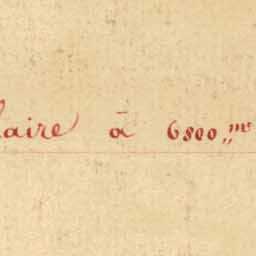 laire à 6800,, mᵉ